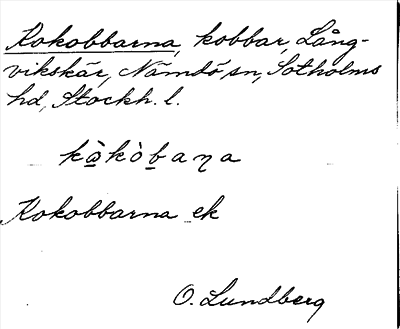 Kokobbarna, kobbar, Lång-
vikskär, Nämdö sn, Sotholms
hd, Stockh. l.
kò̱kòḇaꞃa
Kokobbarna ek
O. Lundberg